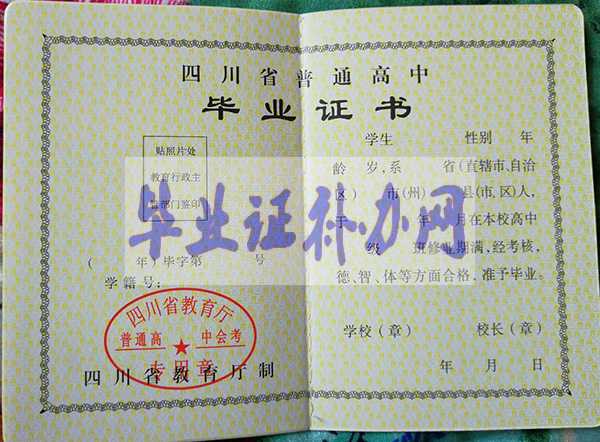 四川省普通高中
毕业证书
贴照片处
教育行政主
管部门签印
(　　年)毕字第　　号
学籍号:
四川省教育厅
普通高　中会考
专用章
四川省教育厅制
学生　　性别　年
龄　岁,系　　省(直辖市、自治
区)　　市(州)　　县(市、区)人,
于　　年　月在本校高中
级　　班修业期满,经考核,
德、智、体等方面合格,准予毕业。
学校(章)　　校长(章)
年　月　日
毕业证补办网